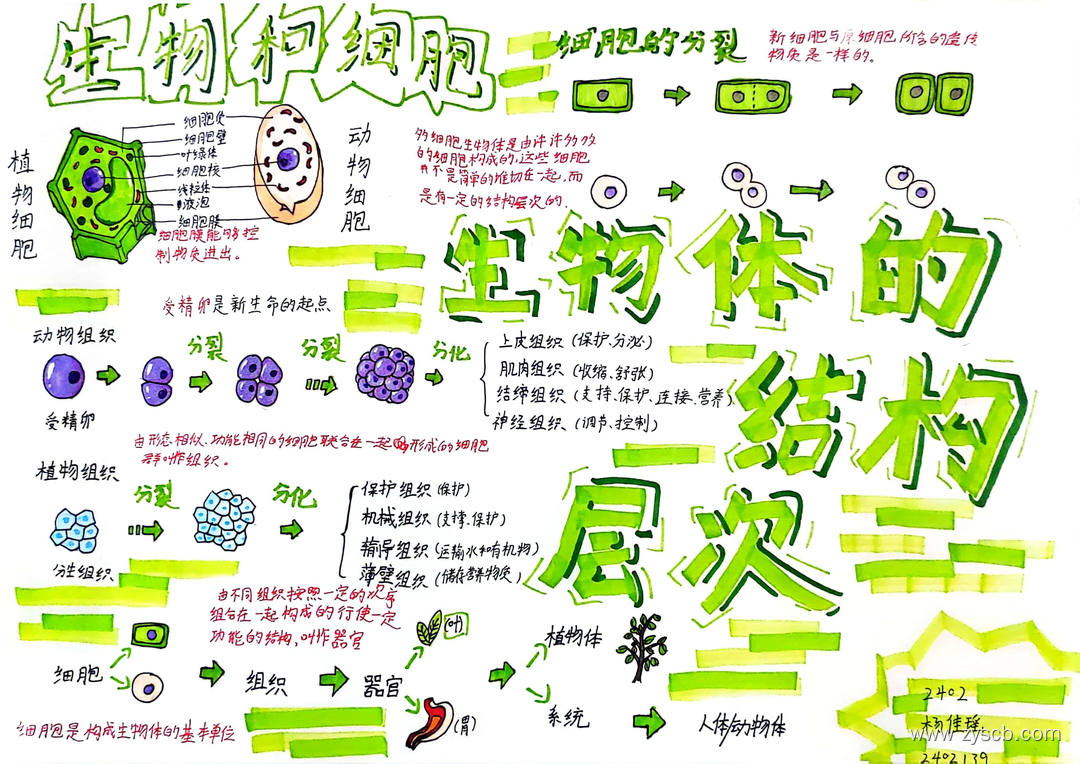 生物和细胞
细胞的分裂
新细胞与原细胞所含的遗传
物质是一样的。
植物细胞
细胞质
细胞壁
叶绿体
细胞核
线粒体
液泡
细胞膜
动物细胞
细胞膜能够控
制物质进出。
多细胞生物体是由许许多多
的细胞构成的,这些细胞
并不是简单的堆切在一起,而
是有一定的结构层次的.
生物体的
结构
层次
受精卵是新生命的起点
动物组织
受精卵
分裂
分裂
分化
上皮组织(保护.分泌)
肌肉组织(收缩.舒张)
结缔组织(支持.保护.连接.营养)
神经组织(调节.控制)
由形态相似、功能相同的细胞联合在一起形成的细胞
群叫作组织。
植物组织
分生组织
分裂
分化
保护组织(保护)
机械组织(支撑.保护)
输导组织(运输水和有机物)
薄壁组织(储存营养物质)
由不同组织按照一定的次序
组合在一起构成的行使一定
功能的结构,叫作器官
细胞
组织
器官
(叶)
(胃)
植物体
系统
人体/动物体
细胞是构成生物体的基本单位
2402
杨佳瑶
2402139
www.zyscb.com